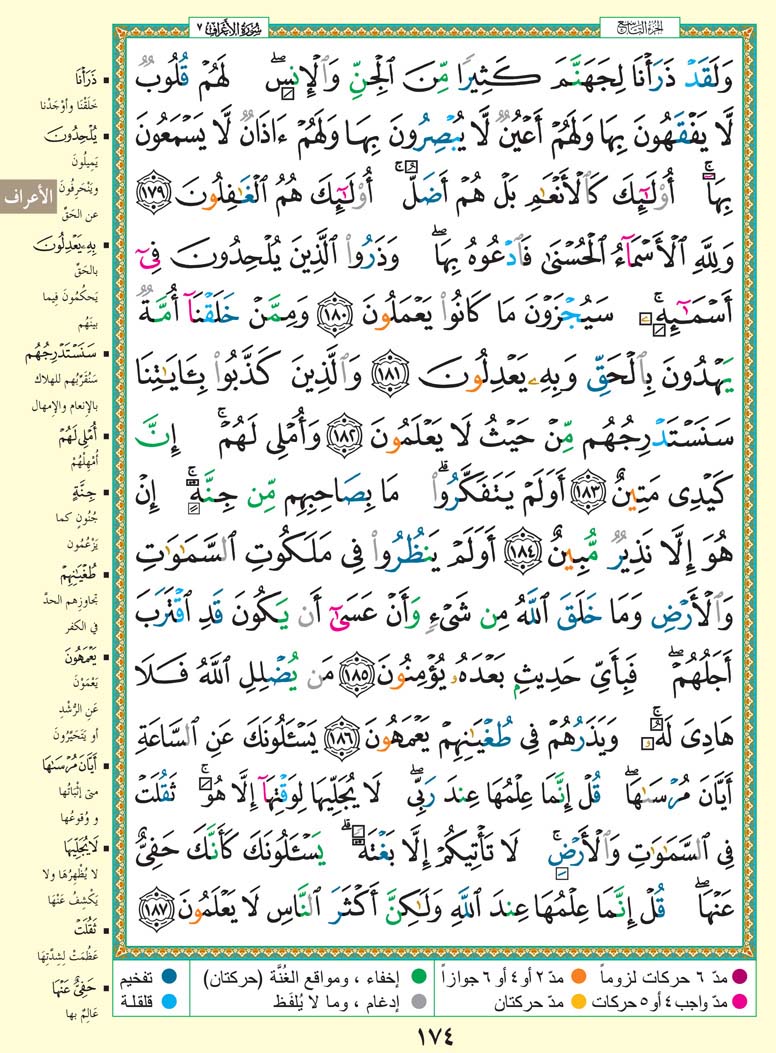 الجزء التاسع
سورة الأعراف ٧
وَلَقَدْ ذَرَأْنَا لِجَهَنَّمَ كَثِيرًا مِّنَ الْجِنِّ وَالْإِنسِ ۖ لَهُمْ قُلُوبٌ
لَّا يَفْقَهُونَ بِهَا وَلَهُمْ أَعْيُنٌ لَّا يُبْصِرُونَ بِهَا وَلَهُمْ ءَاذَانٌ لَّا يَسْمَعُونَ
بِهَا ۚ أُو۟لَٰٓئِكَ كَالْأَنْعَٰمِ بَلْ هُمْ أَضَلُّ ۚ أُو۟لَٰٓئِكَ هُمُ الْغَٰفِلُونَ ١٧٩
وَلِلَّهِ الْأَسْمَآءُ الْحُسْنَىٰ فَادْعُوهُ بِهَا ۖ وَذَرُوا۟ الَّذِينَ يُلْحِدُونَ فِىٓ
أَسْمَٰٓئِهِۦ ۚ سَيُجْزَوْنَ مَا كَانُوا۟ يَعْمَلُونَ ١٨٠ وَمِمَّنْ خَلَقْنَآ أُمَّةٌ
يَهْدُونَ بِالْحَقِّ وَبِهِۦ يَعْدِلُونَ ١٨١ وَالَّذِينَ كَذَّبُوا۟ بِـَٔايَٰتِنَا
سَنَسْتَدْرِجُهُم مِّنْ حَيْثُ لَا يَعْلَمُونَ ١٨٢ وَأُمْلِى لَهُمْ ۚ إِنَّ
كَيْدِى مَتِينٌ ١٨٣ أَوَلَمْ يَتَفَكَّرُوا۟ ۗ مَا بِصَاحِبِهِم مِّن جِنَّةٍ ۚ إِنْ
هُوَ إِلَّا نَذِيرٌ مُّبِينٌ ١٨٤ أَوَلَمْ يَنظُرُوا۟ فِى مَلَكُوتِ السَّمَٰوَٰتِ
وَالْأَرْضِ وَمَا خَلَقَ اللَّهُ مِن شَىْءٍ وَأَنْ عَسَىٰٓ أَن يَكُونَ قَدِ اقْتَرَبَ
أَجَلُهُمْ ۖ فَبِأَىِّ حَدِيثٍۭ بَعْدَهُۥ يُؤْمِنُونَ ١٨٥ مَن يُضْلِلِ اللَّهُ فَلَا
هَادِىَ لَهُۥ ۚ وَيَذَرُهُمْ فِى طُغْيَٰنِهِمْ يَعْمَهُونَ ١٨٦ يَسْـَٔلُونَكَ عَنِ السَّاعَةِ
أَيَّانَ مُرْسَىٰهَا ۖ قُلْ إِنَّمَا عِلْمُهَا عِندَ رَبِّى ۖ لَا يُجَلِّيهَا لِوَقْتِهَآ إِلَّا هُوَ ۚ ثَقُلَتْ
فِى السَّمَٰوَٰتِ وَالْأَرْضِ ۚ لَا تَأْتِيكُمْ إِلَّا بَغْتَةً ۗ يَسْـَٔلُونَكَ كَأَنَّكَ حَفِىٌّ
عَنْهَا ۖ قُلْ إِنَّمَا عِلْمُهَا عِندَ اللَّهِ وَلَٰكِنَّ أَكْثَرَ النَّاسِ لَا يَعْلَمُونَ ١٨٧
ذَرَأْنَا
خَلَقْنَا وأوْجَدْنا
يُلْحِدُونَ
يَمِيلُونَ
ويَنْحَرِفُونَ
عن الحَقّ
الأعراف
بِهِۦ يَعْدِلُونَ
بالحَقّ
يَحكُمُونَ فِيما
بينَهُم
سَنَسْتَدْرِجُهُم
سَنُقَرِّبُهم للهلاك
بالإنعام والإمهال
أُمْلِى لَهُمْ
أُمْهِلُهُمْ
جِنَّةٍ
جُنُونٍ كما
يَزْعُمُون
طُغْيَٰنِهِمْ
تجاوزِهم الحدَّ
في الكفر
يَعْمَهُونَ
يَعْمَوْنَ
عَنِ الرُّشْدِ
أو يَتَحَيَّرُونَ
أَيَّانَ مُرْسَىٰهَا
متى إثْبَاتُها
و وُقوعُها
لَا يُجَلِّيهَا
لا يُظْهِرُهَا ولا
يَكْشِفُ عَنْهَا
ثَقُلَتْ
عَظُمَتْ لِشِدَّتِها
حَفِىٌّ عَنْهَا
عَالِمٌ بها
مدّ ٦ حركات لزوماً
مدّ ٢ أو ٤ أو ٦ جوازاً
إخفاء ، ومواقع الغُنَّة (حركتان)
تفخيم
مدّ واجب ٤ أو ٥ حركات
مدّ حركتان
إدغام ، وما لا يُلفَظ
قلقلة
١٧٤